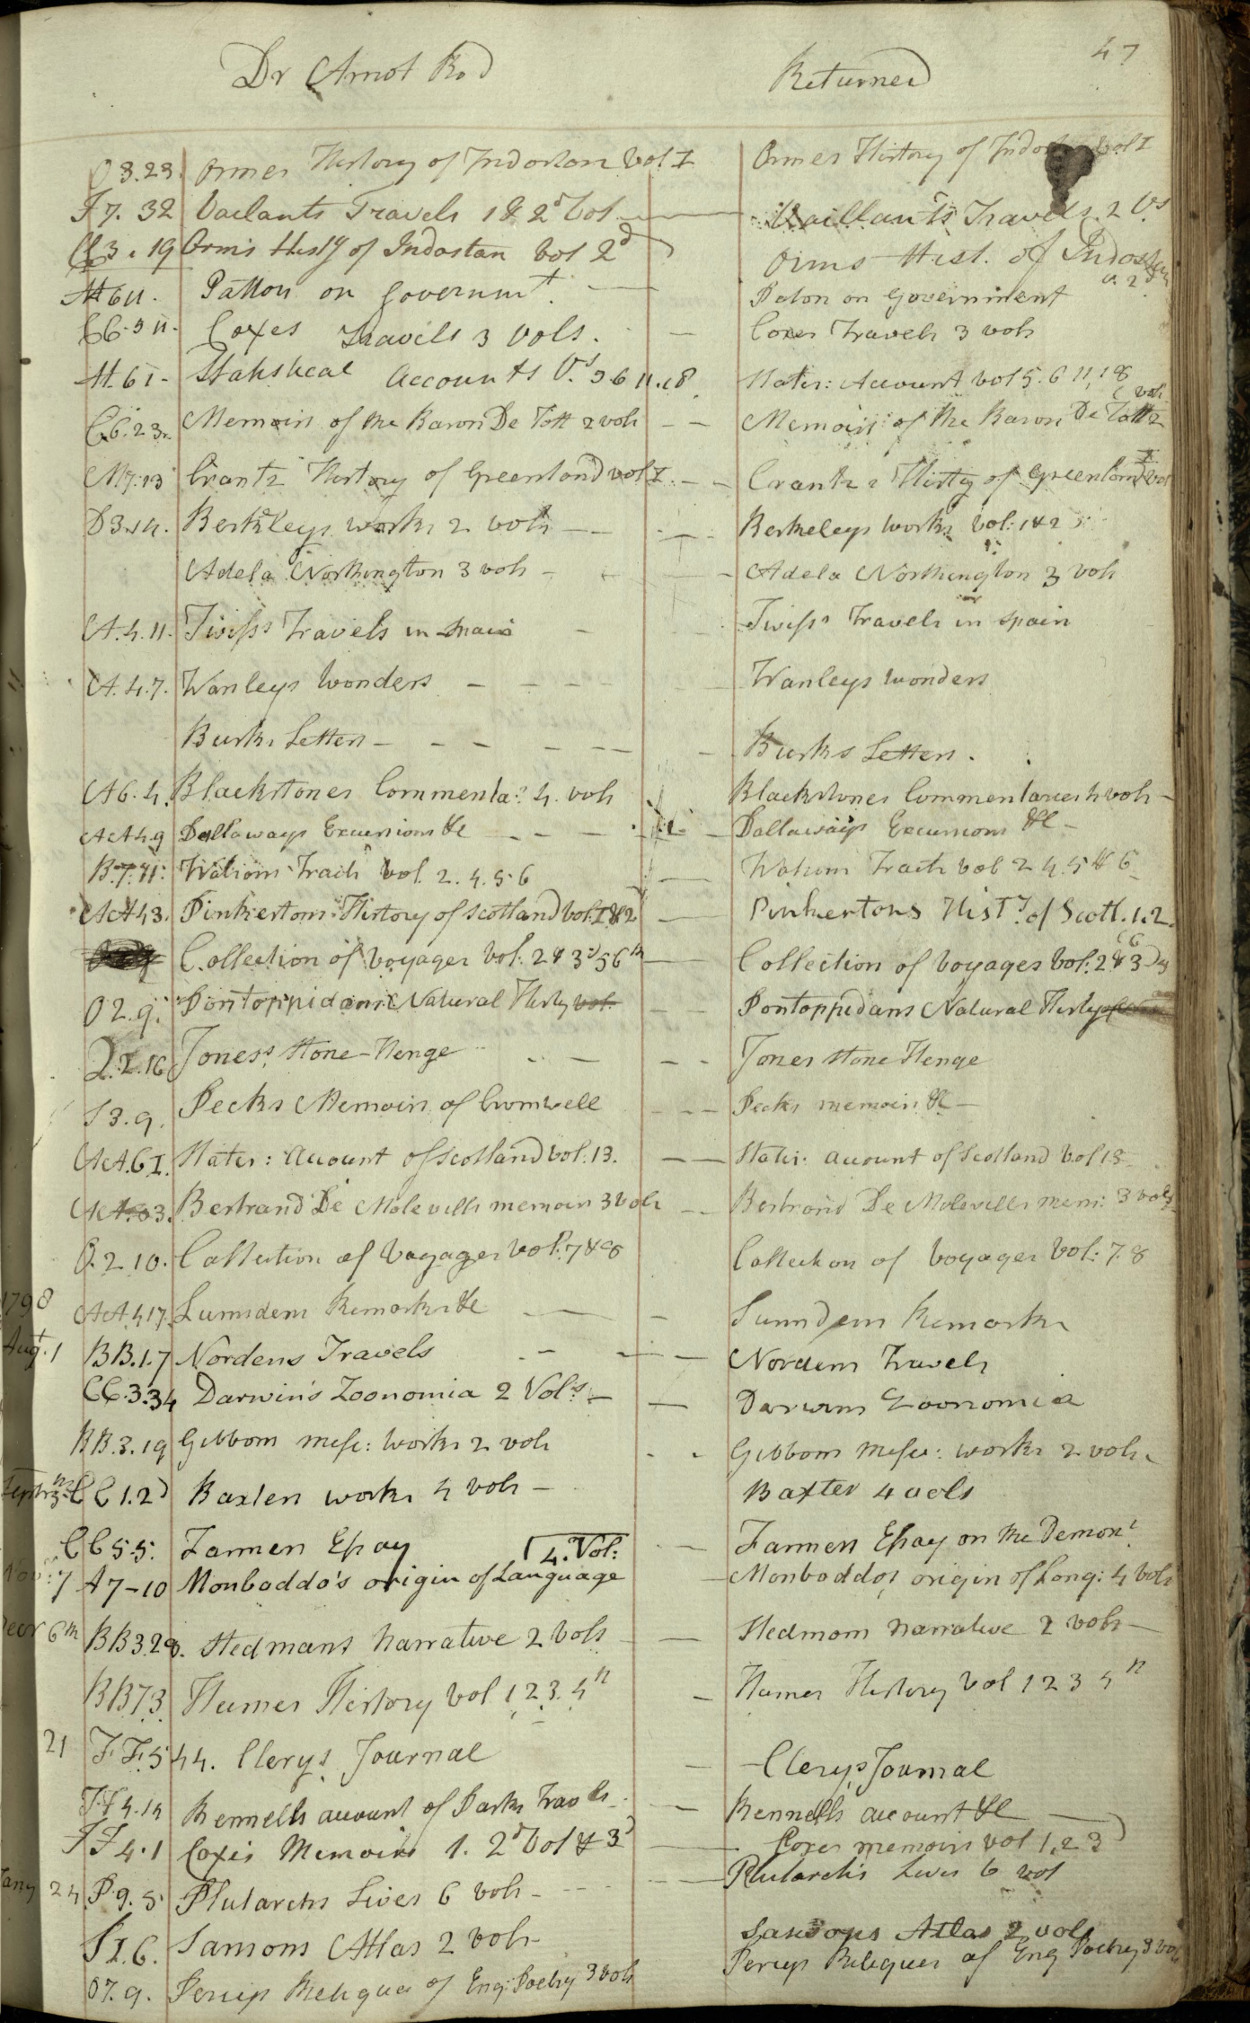 47
Dr Arnot Rd Returned
O 3.23. Ormes History of Indostan Vol I Ormes History of Vol I
F 7. 32 Vailants Travels 1 & 2d Vol Vaillants Travels. 2 Vs
3. 19 Orms Histy of Indostan Vol 2d Orms Hist. of Indostan v. 2d
6 11. Patton on Governmt. Paton on Government
Coxes Travels 3 Vols. Coxes Travels 3 vols
6 I. Statistical Accounts Vs. 5 6 11. 18 Statis: Account vol 5. 6 11, 18
6. 23. Memoirs of the Baron De Tott 2 vols Memoirs of the Baron De Tott 2 vols
M 7. 13 Crantz History of Greenland vol I. Crantz Histy of Greenland vol I
D 3. 14. Berkleys works 2 vols Berkeleys works Vol: 1 & 2
Adela Northington 3 vols Adela Northington 3 vols
A. 4. 11. Twiss's Travels in Spain Twiss's Travels in Spain
A. 4. 7. Wanleys Wonders Wanleys Wonders
Burks Letters Burks Letters.
A 6. 4. Blackstones Commenta: 4. vols Blackstones Commentaries 4 vols
AA 4 9 Dallaways Excursions &c Dallaways Excursions &c
B. 7. 11: Watsons Tracts Vol. 2. 4. 5 6 Watsons Tracts vol 2 4. 5 & 6
AA 4 3. Pinkertons History of Scotland Vol: I & 2 Pinkertons Histy. of Scott. 1. 2.
Collection of Voyages Vol: 2 & 3d 5 6th Collection of Voyages Vol: 2 & 3d
O 2. 9. Pontoppidans Natural Histy vol. Pontoppidans Natural Histy
2. 16 Jones's Stone-Henge Jones Stone Henge
S 3. 9. Pecks Memoirs of Cromwell Pecks memoirs &c
AA. 6 I. Statis: Account of Scotland vol: 13. Statis: account of Scotland Vol 13
Bertrand De Molevills memoirs 3 vols Bertrand De Molevills mem: 3 vols
O. 2 10. Collection of Voyages vol: 7 & 8 Collection of Voyages Vol: 7. 8
1798 AA 4 17. Lumsdens Remarks &c Lumsdens Remarks
Augt. 1 BB. 1. 7 Nordens Travels Nordens Travels
CC. 3. 34 Darwin's Zoonomia 2 Vols. Darwins Zoonomia
BB. 3. 19 Gibbons misc: works 2 vols Gibbons misc: works 2 vols
CC 1. 2d Baxters works 4 vols Baxter 4 vols
CC 5 5. Farmers Essay Farmers Essay on the Demont
Nov: 7 A 7-10 Monboddo's origin of Language 4. Vol: Monboddos origin of Lang: 4 vols
Decr 6th BB 3. 28. Stedmans Narrative 2 Vols Stedmans Narrative 2 vols
BB 7. 3. Humes History Vol 1 2 3. 4th Humes History Vol 1 2 3 4th
21 FF. 5 44. Clerys Journal Clerys Journal
FF 4. 14 Rennells account of Parks Travels Rennells account &c
FF 4. 1 Coxes Memoirs 1. 2d Vol & 3d Coxes memoirs vol 1. 2 3d
Jany 24 P. 9. 5. Plutarchs Lives 6 vols Plutarchs Lives 6 vol
S I. 6. Sansons Atlas 2 vols Sansons Atlas 2 vols
O 7. 9. Percys Reliques of Eng: Poetry 3 vols Percys Reliques of Eng Poetry 3 vol